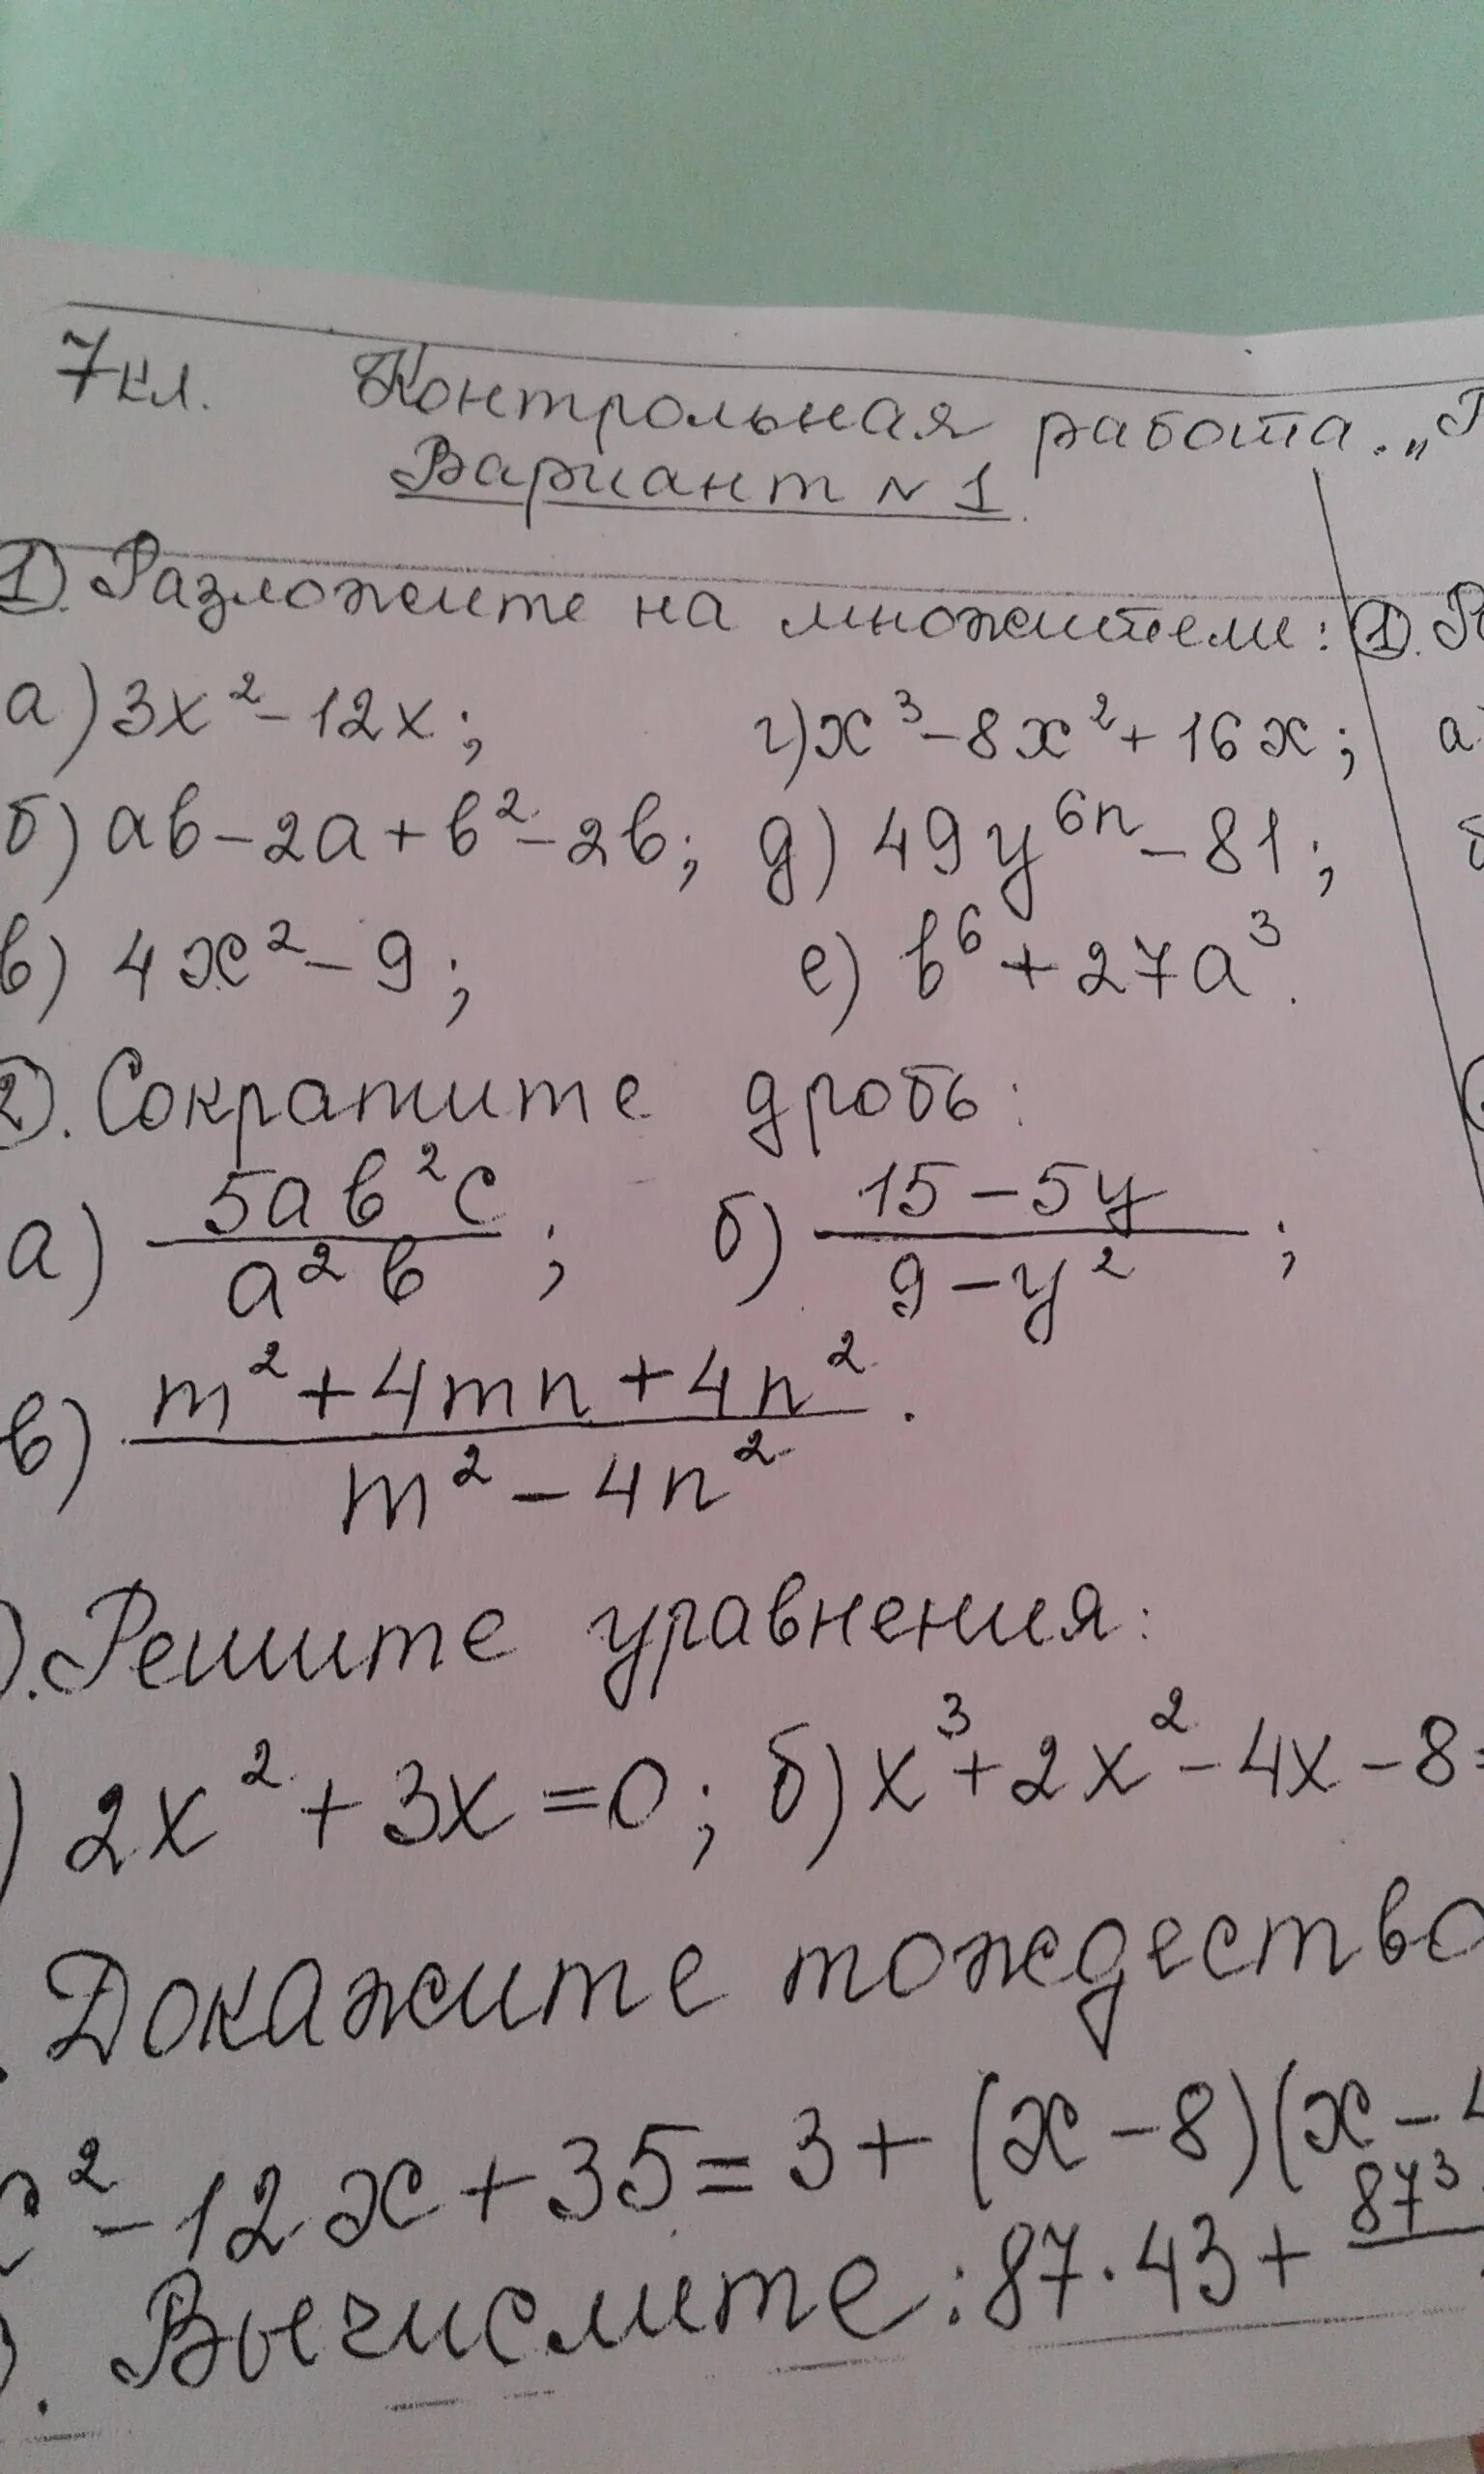 7кл. Контрольная работа. „Р
Вариант №1.
1). Разложите на множители:
а) 3x² - 12x; г) x³ - 8x² + 16x;
б) ab - 2a + b² - 2b; д) 49y⁶ⁿ - 81;
в) 4x² - 9; е) b⁶ + 27a³.
2). Сократите дробь:
а) 5ab²c / a²b; б) 15 - 5y / 9 - y²;
в) m² + 4mn + 4n² / m² - 4n².
). Решите уравнения:
) 2x² + 3x = 0; б) x³ + 2x² - 4x - 8 =
. Докажите тождество
x² - 12x + 35 = 3 + (x - 8)(x - 4
). Вычислите: 87·43 + 87³
1). Р
а)
б